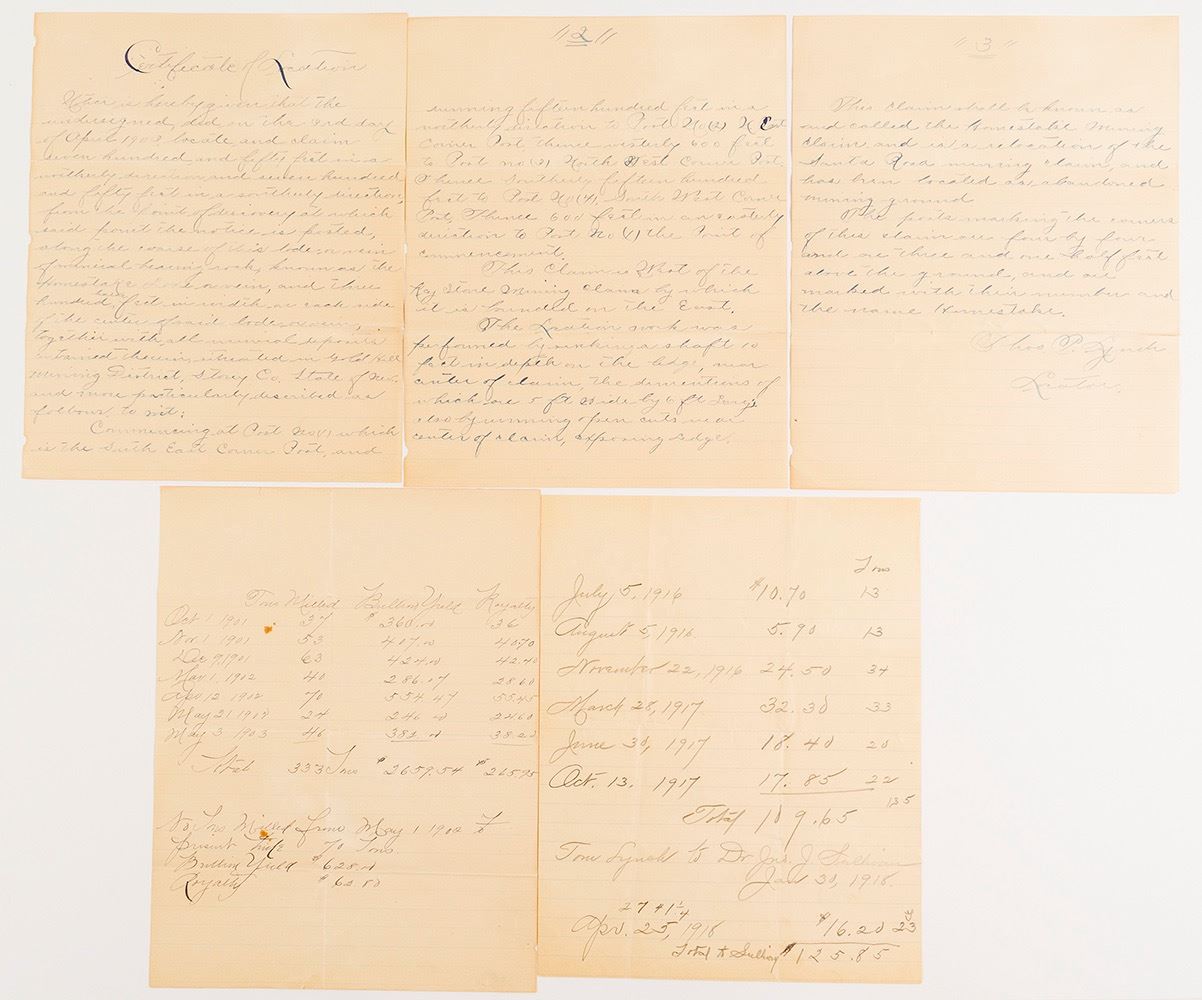 Certificate of Location
Notice is hereby given that the
undersigned, did on the 3rd day
of April 1903 locate and claim
seven hundred and fifty feet in a
northerly direction and seven hundred
and fifty feet in a southerly direction,
from the point of discovery at which
said point the notice is posted,
along the course of this lode or vein
of mineral bearing rock, known as the
Homestake Lode or vein, and three
hundred feet in width on each side
of the center of said lode or vein,
together with all mineral deposits
contained therein, situated in Gold Hill
Mining District, Storey Co. State of Nev.
and more particularly described as
follows, to wit:
Commencing at Post No (1) which
is the South East Corner Post, and
"2"
running fifteen hundred feet in a
northerly direction to Post No (2) N East
Corner Post thence westerly 600 feet
to Post no (3) North West Corner Post,
Thence Southerly fifteen hundred
feet to Post No (4), South West Corner
Post, Thence 600 feet in an easterly
direction to Post No (1) the Point of
commencement.
This Claim is West of the
Key Stone Mining Claim by which
it is bounded on the East.
The Location work was
performed by sinking a shaft 10
feet in depth on the ledge, near
center of claim, the dimentions of
which are 5 ft wide by 6 ft long,
also by running open cuts near
center of claim, exposing ledge.
" 3 "
This claim shall be known as
and called the Homestake Mining
Claim and is a relocation of the
Santa Rosa mining claim, and
has been located as abandoned
mining ground
The posts marking the corners
of this claim are four by four
and are three and one half feet
above the ground, and are
marked with their number and
the name Homestake.
Thos P. Lynch
Locator.
Tons Milled Bullion Yield Royalty
Oct 1 1901 37 $360.00 36
Nov. 1 1901 53 407.00 40.70
Dec 9, 1901 63 424.00 42.40
Mar 1. 1902 40 286.07 28.60
Apr 12 1902 70 554.47 55.45
May 21 1902 24 246.00 24.60
May 3 1903 46 382.00 38.20
Total 333 Tons $2659.54 $265.95
No Tons Milled from May 1 1902 To
present time 70 Tons
Bullion Yield $628.00
Royalty $62.80
Tons
July 5, 1916 $10.70 13
August 5, 1916 5.90 13
November 22, 1916 24.50 34
March 28, 1917 32.30 33
June 30, 1917 18.40 20
Oct. 13. 1917 17.85 22
135
Total 109.65
Tom Lynch to Dr Jno. J. Sullivan
Jan 30, 1918.
Apr. 25, 1918 $16.20 23
Total to Sullivan $125.85